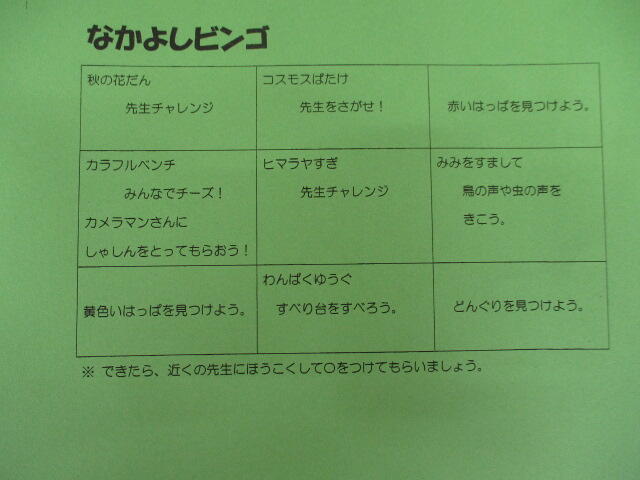 なかよしビンゴ
秋の花だん
先生チャレンジ
コスモスばたけ
先生をさがせ！
赤いはっぱを見つけよう。
カラフルベンチ
みんなでチーズ！
カメラマンさんに
しゃしんをとってもらおう！
ヒマラヤすぎ
先生チャレンジ
みみをすまして
鳥の声や虫の声を
きこう。
黄色いはっぱを見つけよう。
わんぱくゆうぐ
すべり台をすべろう。
どんぐりを見つけよう。
※ できたら、近くの先生にほうこくして〇をつけてもらいましょう。